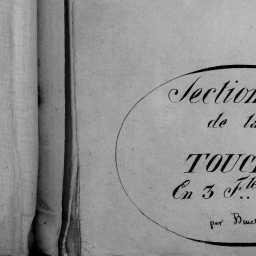 Section
de la
TOUCH
En 3 F.lles
par